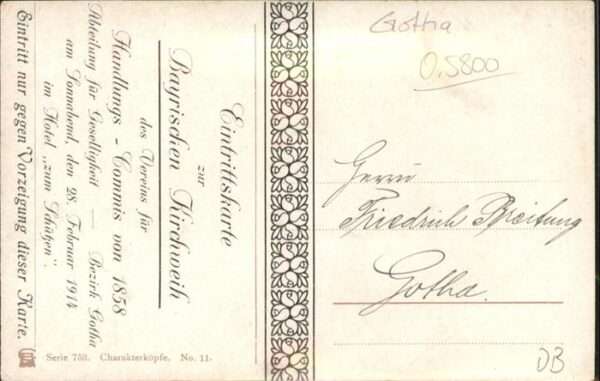 Eintrittskarte
zur
Bayrischen Kirchweih
des Vereins für
Handlungs - Commis von 1858
Abteilung für Geselligkeit — Bezirk Gotha
am Sonnabend, den 28. Februar 1914
im Hotel „zum Schützen".
Eintritt nur gegen Vorzeigung dieser Karte.
Serie 753. Charakterköpfe. No. 11.
Gotha
0.5800
Herrn
Friedrich Breitung
Gotha.
DB